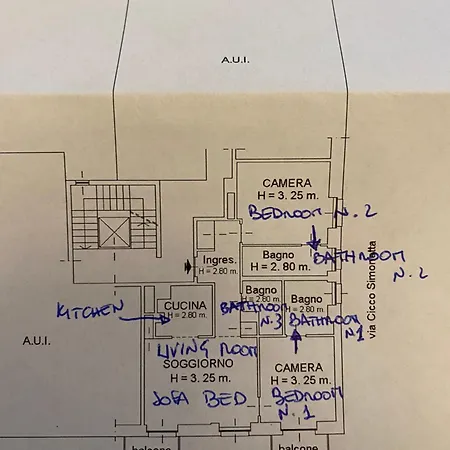 A.U.I.
CAMERA
H = 3. 25 m.
BEDROOM N. 2
Bagno
H = 2. 80 m.
BATHROOM
N. 2
Ingres.
H = 2.80 m.
via Cicco Simonetta
Bagno
H = 2.80 m.
Bagno
H = 2.80 m.
KITCHEN
CUCINA
H = 2.80 m.
BATHROOM
N.3
BATHROOM
N1
A.U.I.
LIVING ROOM
SOGGIORNO
H = 3. 25 m.
SOFA BED
CAMERA
H = 3. 25 m.
BEDROOM
N. 1
balcone
balcone